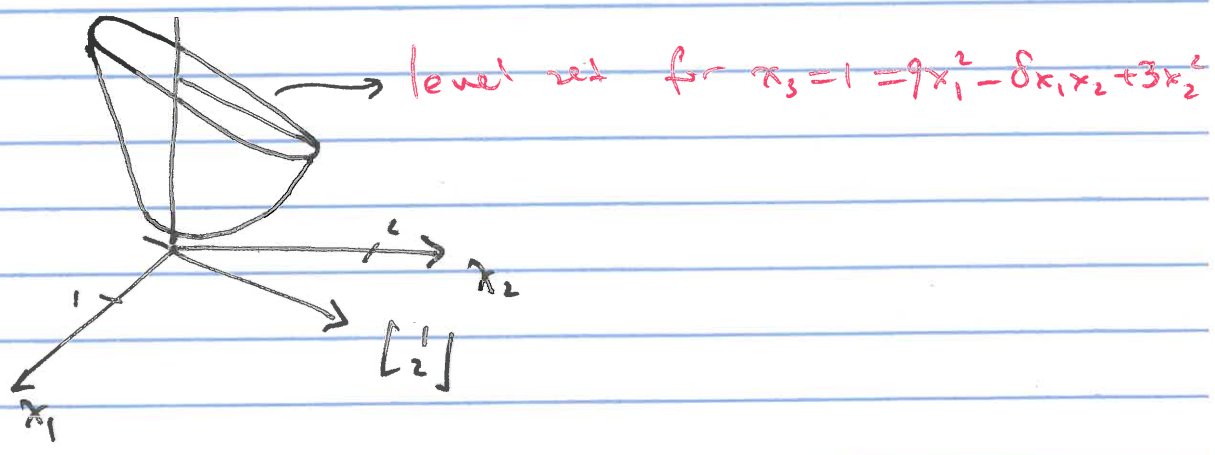 level set for x₃ = 1 = 9x₁² - 8x₁x₂ + 3x₂²
2
x₂
1
[1
2]
x₁